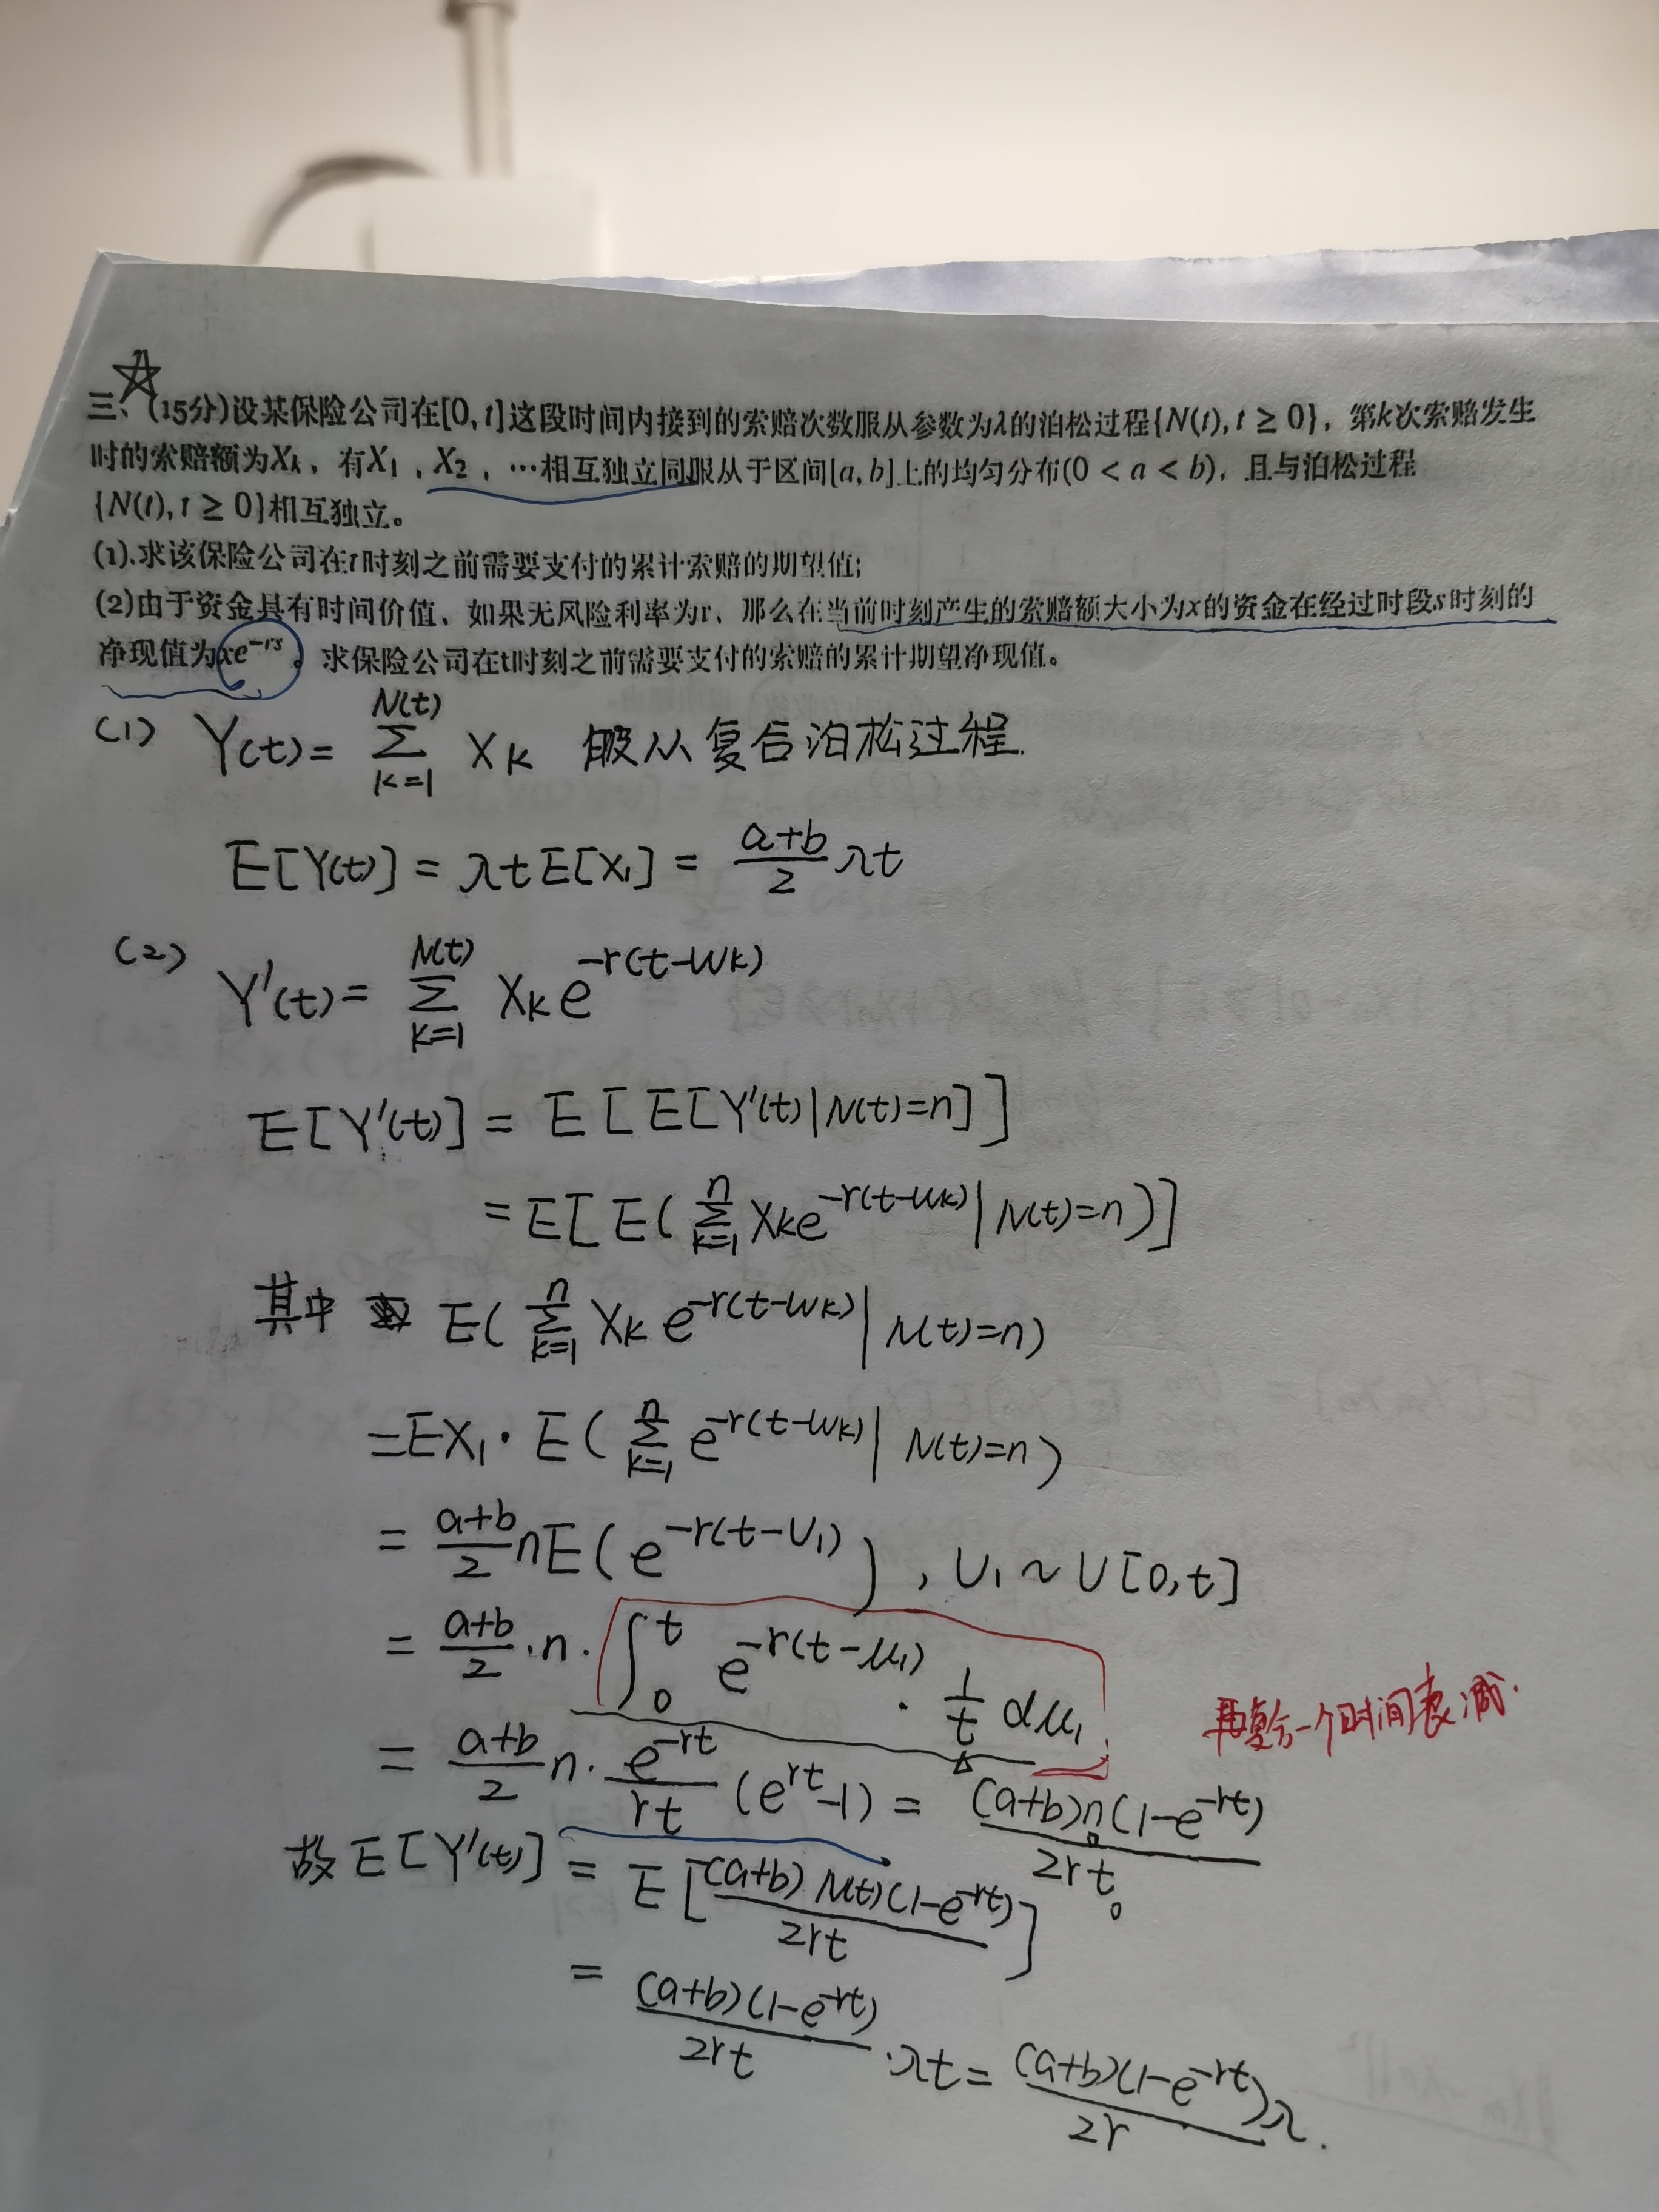 三、(15分)设某保险公司在[0, t]这段时间内接到的索赔次数服从参数为λ的泊松过程{N(t), t ≥ 0}，第k次索赔发生
时的索赔额为Xₖ，有X₁，X₂，…相互独立同服从于区间[a, b]上的均匀分布(0 < a < b)，且与泊松过程
{N(t), t ≥ 0}相互独立。
(1).求该保险公司在t时刻之前需要支付的累计索赔的期望值;
(2)由于资金具有时间价值，如果无风险利率为r，那么在当前时刻产生的索赔额大小为x的资金在经过时段s时刻的
净现值为xe^{-rs}。求保险公司在t时刻之前需要支付的索赔的累计期望净现值。
(1) Y(t)= \sum_{k=1}^{N(t)} X_k 服从复合泊松过程.
E[Y(t)] = λtE[X₁] = \frac{a+b}{2} λt
(2) Y'(t)= \sum_{k=1}^{N(t)} X_k e^{-r(t-W_k)}
E[Y'(t)] = E[E[Y'(t)|N(t)=n]]
=E[E(\sum_{k=1}^{n} X_k e^{-r(t-W_k)}|N(t)=n)]
其中 E(\sum_{k=1}^{n} X_k e^{-r(t-W_k)}|N(t)=n)
=EX₁·E(\sum_{k=1}^{n} e^{-r(t-W_k)}|N(t)=n)
= \frac{a+b}{2} nE(e^{-r(t-U₁)}), U₁~U[0,t]
= \frac{a+b}{2}·n·\int_0^t e^{-r(t-u₁)}·\frac{1}{t} du₁
再复合一个时间衰减.
= \frac{a+b}{2} n·\frac{e^{-rt}}{rt}(e^{rt}-1) = \frac{(a+b)n(1-e^{-rt})}{2rt}。
故E[Y'(t)] = E[\frac{(a+b)N(t)(1-e^{-rt})}{2rt}]
= \frac{(a+b)(1-e^{-rt})}{2rt}·λt = \frac{(a+b)(1-e^{-rt})}{2r}λ.